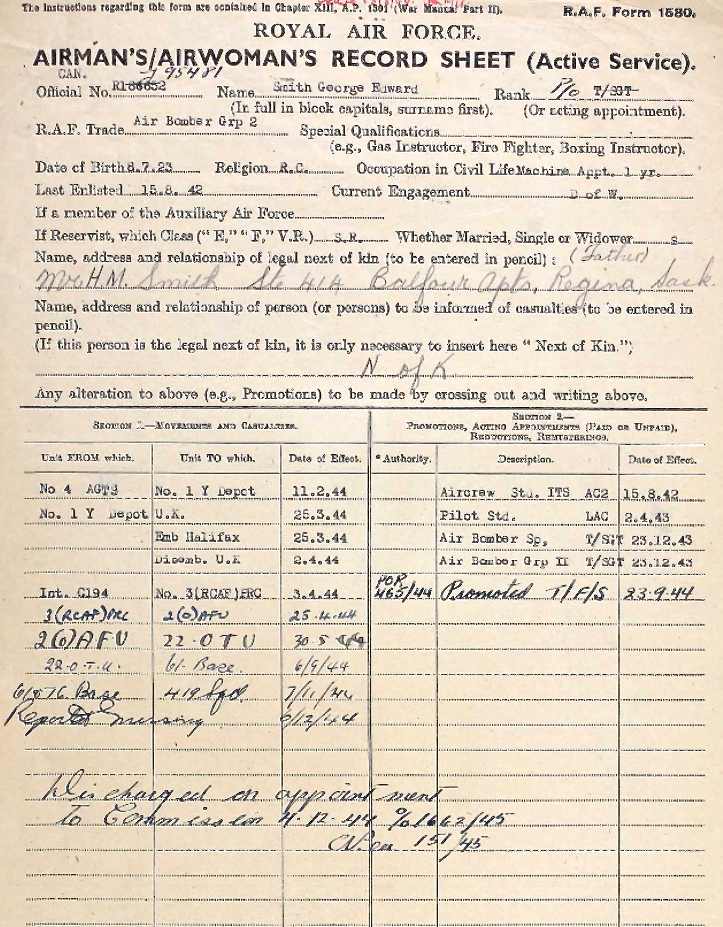 The Instructions regarding this form are contained in Chapter XIII, A.P. 1301 (War Manual Part II).
R.A.F. Form 1580.
ROYAL AIR FORCE.
AIRMAN'S/AIRWOMAN'S RECORD SHEET (Active Service).
CAN. J 95481
Official No. R186652 Name Smith George Edward Rank P/O T/SGT
(In full in block capitals, surname first). (Or acting appointment).
R.A.F. Trade Air Bomber Grp 2 Special Qualifications
(e.g., Gas Instructor, Fire Fighter, Boxing Instructor).
Date of Birth 8.7.23 Religion R.C. Occupation in Civil Life Machine Appt. 1 yr.
Last Enlisted 15.8. 42 Current Engagement D of W.
If a member of the Auxiliary Air Force
If Reservist, which Class ("E," "F," V.R.) S.R. Whether Married, Single or Widower s
Name, address and relationship of legal next of kin (to be entered in pencil): (Father)
Mr H.M. Smith Ste 414 Balfour Apts, Regina, Sask.
Name, address and relationship of person (or persons) to be informed of casualties (to be entered in
pencil).
(If this person is the legal next of kin, it is only necessary to insert here "Next of Kin.")
N of K
Any alteration to above (e.g., Promotions) to be made by crossing out and writing above.
SECTION 1.—MOVEMENTS AND CASUALTIES.
SECTION 2.—
PROMOTIONS, ACTING APPOINTMENTS (PAID OR UNPAID),
REDUCTIONS, REMUSTERINGS.
Unit FROM which. Unit TO which. Date of Effect. *Authority. Description. Date of Effect.
No 4 AGTS No. 1 Y Depot 11.2.44 Aircrew Std. ITS AC2 15.8.42
No. 1 Y Depot U.K. 25.3.44 Pilot Std. LAC 2.4.43
Emb Halifax 25.3.44 Air Bomber Sp, T/SGT 23.12.43
Disemb. U.K 2.4.44 Air Bomber Grp II T/SGT 23.12.43
Int. C194 No. 3(RCAF)PRC 3.4.44 POR 465/44 Promoted T/F/S 23.9.44
3(RCAF)PRC 2(O)AFU 25.4.44
2(O)AFU 22 OTU 30 5 44
22.O.T.U. 61 Base. 6/9/44
61 & 76 Base 419 Sqd. 7/11/44
Reported missing 6/12/44
Discharged on appointment
to Commission 4.12.44 1662/45
151/45